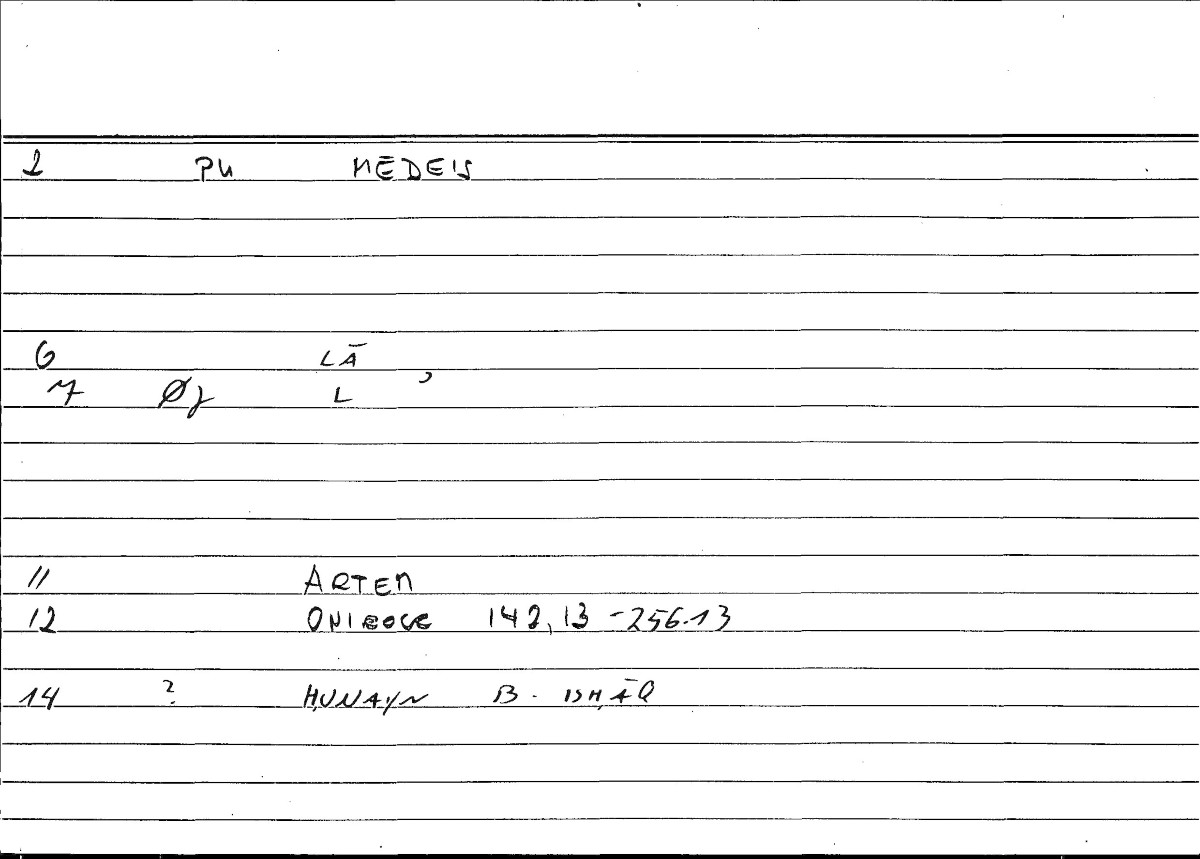 2 PU MĒDEIS
6 LĀ
7 Øj L ʾ
11 ARTEM
12 ONIROCR 142,13 - 256.13
14 ? ḤUNAYN B. ISḤĀQ